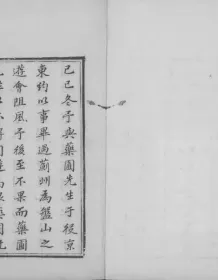 己巳冬予與藥圃先生于役京
東約以事畢過薊州為盤山之
遊會阻風予後至不果而藥圃